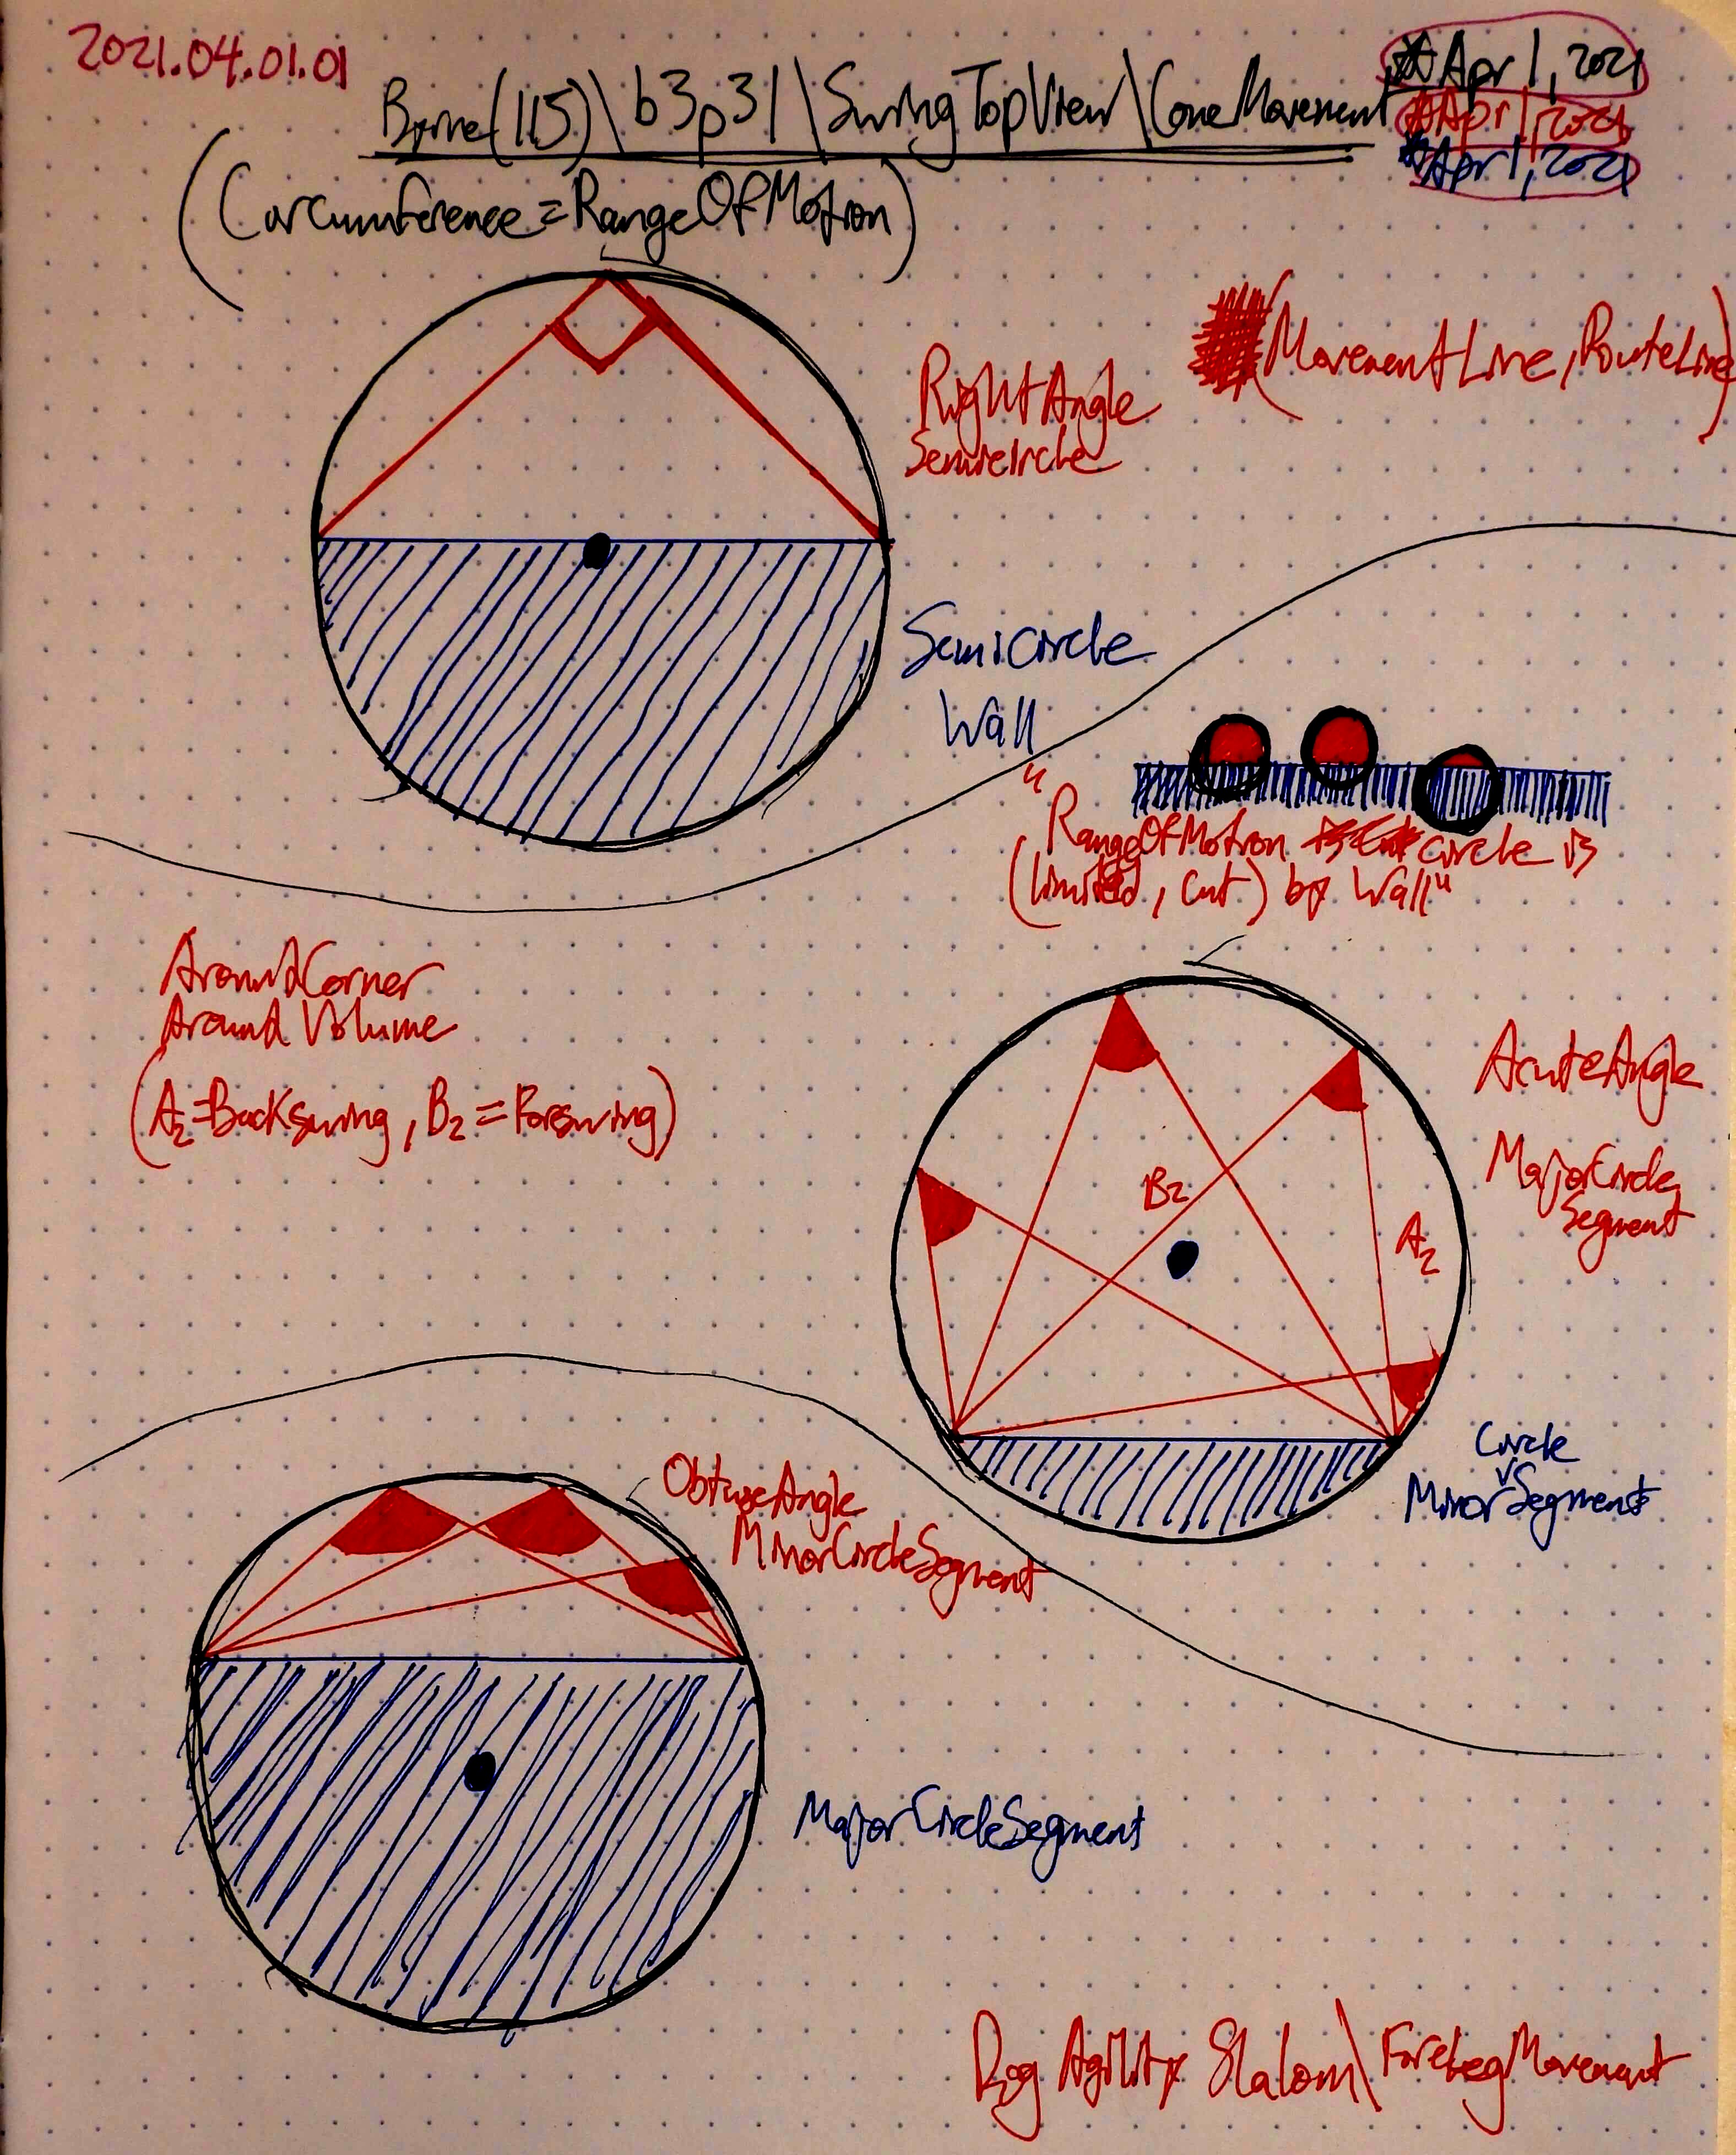 2021.04.01.01
Byrne(115)\b3p31\SwingTopView\ConeMovement
Apr 1, 2021
Apr 1, 2021
Apr 1, 2021
(Circumference=RangeOfMotion)
(MovementLine, RouteLine)
RightAngle
Semicircle
Semicircle
Wall
"RangeOfMotion circle is
(limited, cut) by Wall"
AroundCorner
Around Volume
(A2=Backswing, B2=Foreswing)
AcuteAngle
MajorCircle
Segment
B2
A2
Circle
MinorSegment
ObtuseAngle
MinorCircleSegment
MajorCircleSegment
Dog Agility Slalom\ForelegMovement